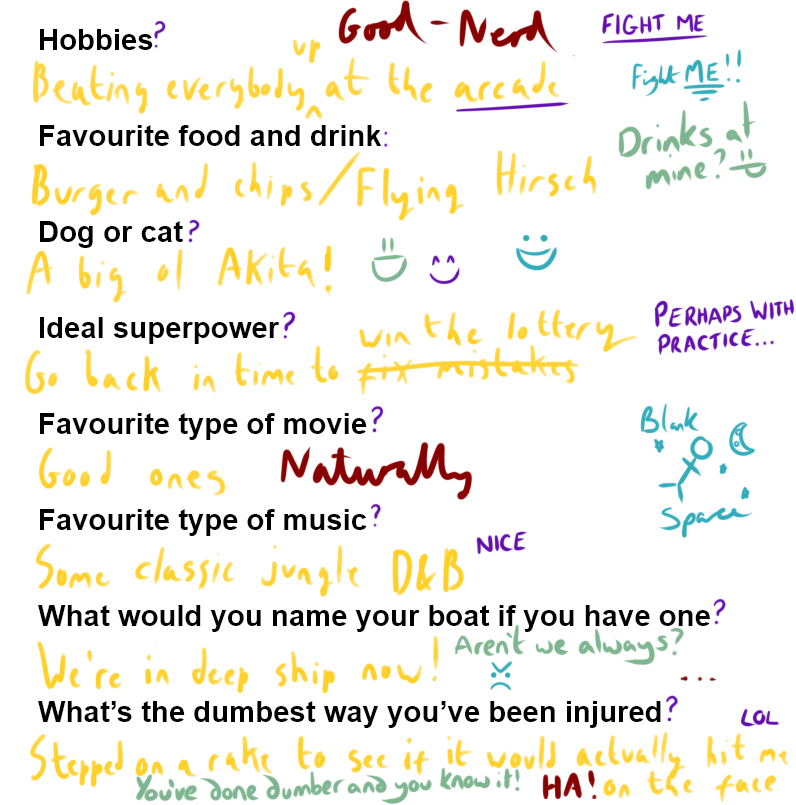 Hobbies? Good-Nerd FIGHT ME
up
Beating everybody ^ at the arcade Fight ME!!
Favourite food and drink: Drinks at
Burger and chips/Flying Hirsch mine?
Dog or cat?
A big ol Akita!
Ideal superpower? win the lottery PERHAPS WITH
Go back in time to fix mistakes PRACTICE...
Favourite type of movie? Blank
Good ones Naturally
Favourite type of music? Space
Some classic jungle D&B NICE
What would you name your boat if you have one?
We're in deep ship now! Aren't we always? ...
What's the dumbest way you've been injured? LOL
Stepped on a rake to see if it would actually hit me
You've done dumber and you know it! HA! on the face